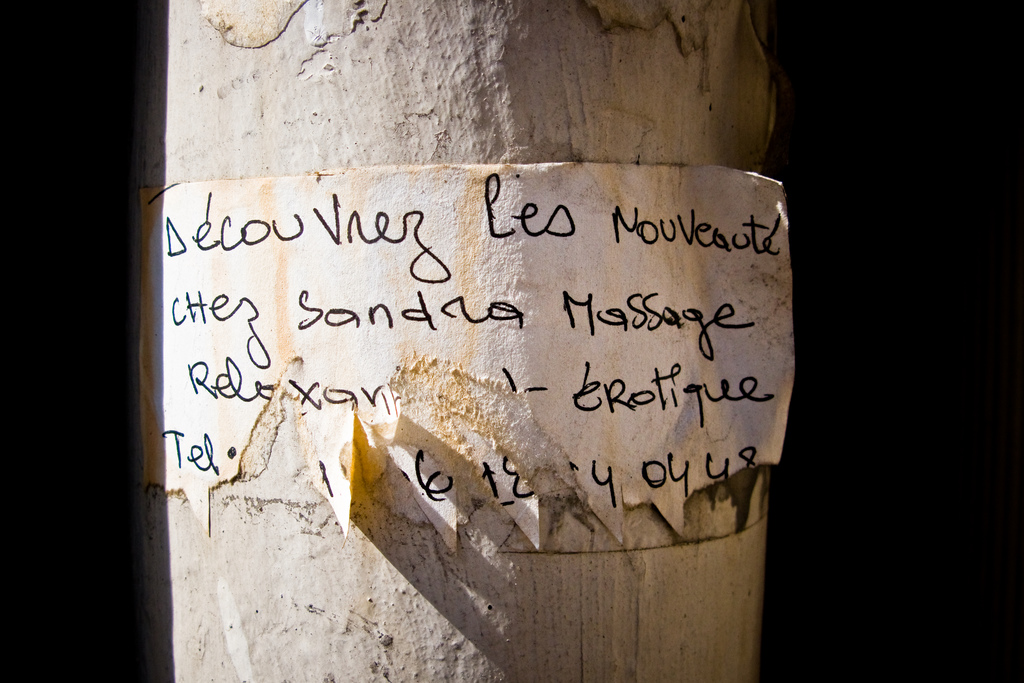 Découvrez les Nouveauté
chez Sandra Massage
Relaxan - érotique
Tel. 12 04 48